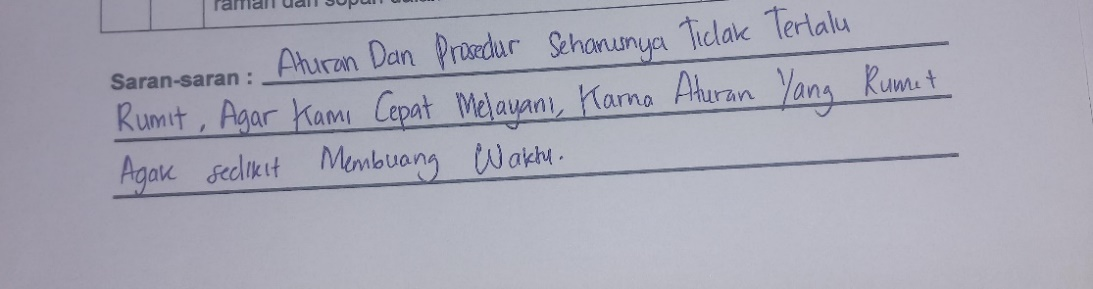 ramah dan sopan
Saran-saran : Aturan Dan Prosedur Seharusnya Tidak Terlalu
Rumit, Agar Kami Cepat Melayani, Karna Aturan Yang Rumit
Agak sedikit Membuang Waktu.